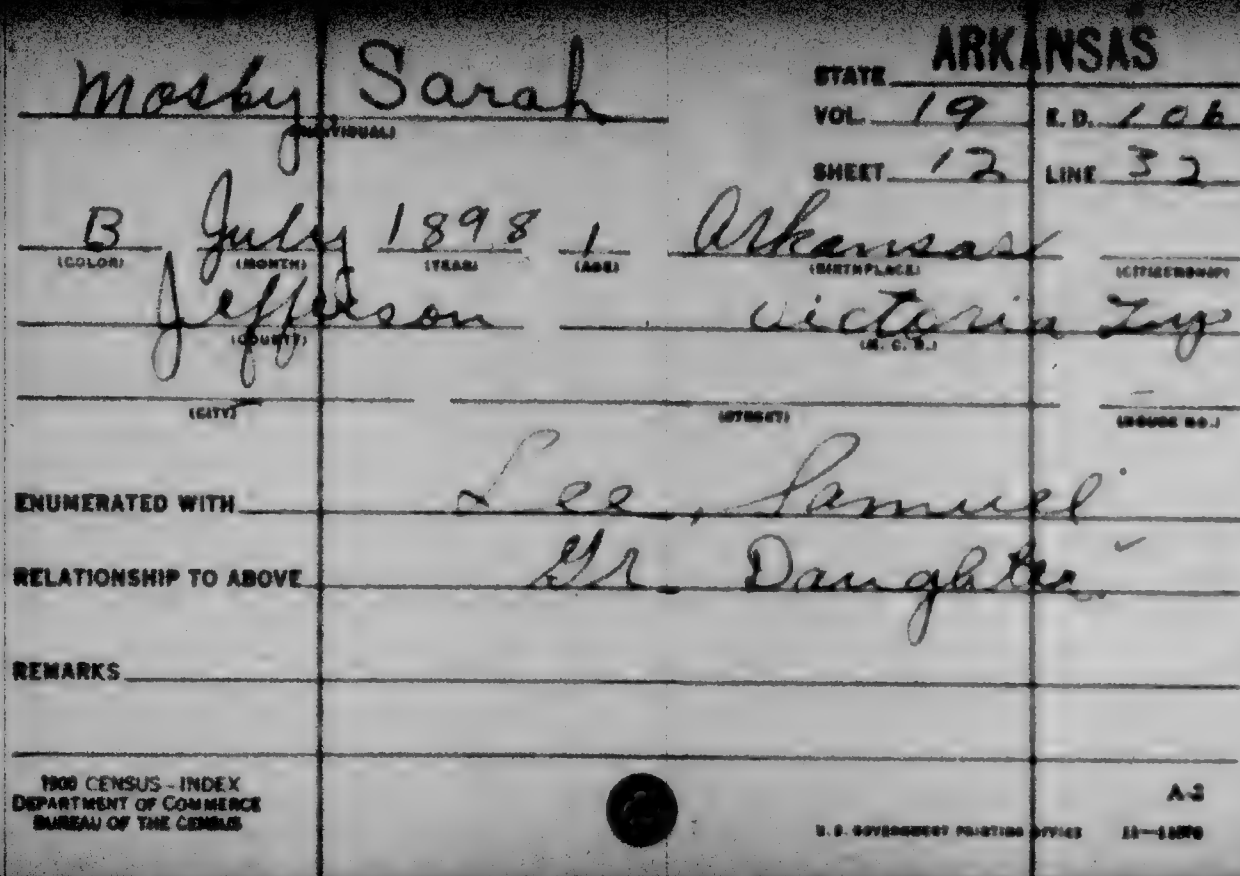 ARKANSAS
STATE
Mosby Sarah
(INDIVIDUAL)
VOL. 19 E. D. 106
SHEET 12 LINE 32
B July 1898 1 Arkansas
(COLOR) (MONTH) (YEAR) (AGE) (BIRTHPLACE) (CITIZENSHIP)
Jefferson Victoria Twp
(COUNTY) (M. C. D.)
(CITY) (STREET) (HOUSE NO.)
ENUMERATED WITH Lee, Samuel
RELATIONSHIP TO ABOVE Gr. Daughter
REMARKS
1900 CENSUS - INDEX
DEPARTMENT OF COMMERCE
BUREAU OF THE CENSUS
A-2
U. S. GOVERNMENT PRINTING OFFICE